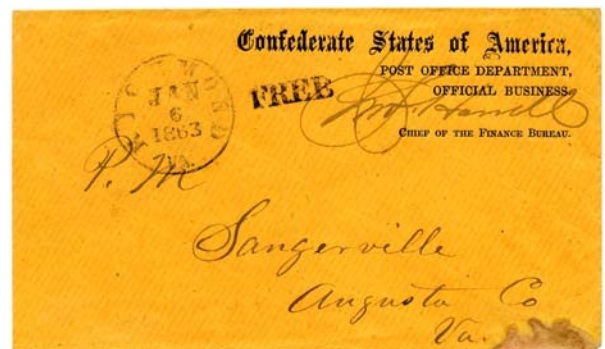 Confederate States of America,
POST OFFICE DEPARTMENT,
OFFICIAL BUSINESS.
CHIEF OF THE FINANCE BUREAU.
RICHMOND
JAN
6
1863
VA.
FREE
P. M
Sangerville
Augusta Co
Va.